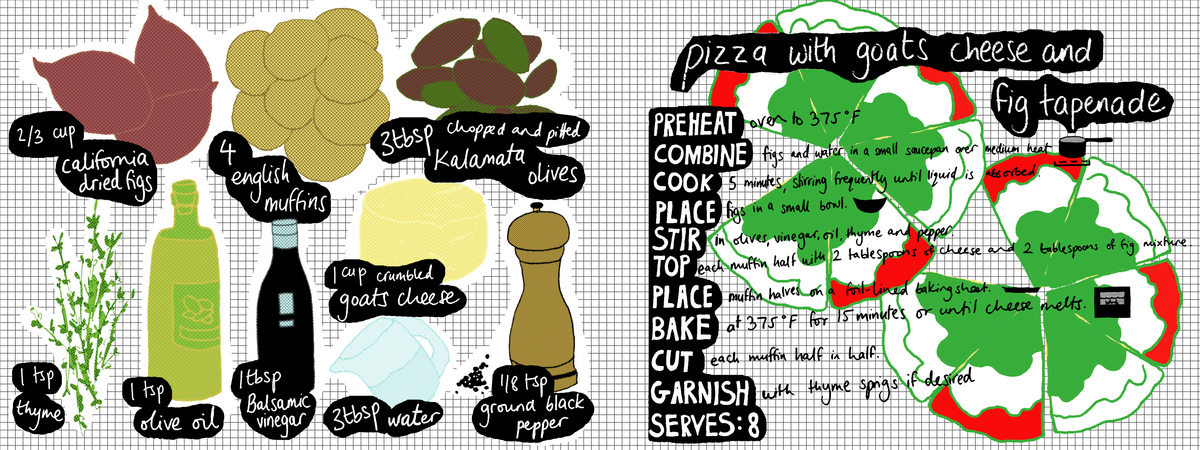 2/3 cup
california
dried figs
4
english
muffins
3tbsp chopped and pitted
Kalamata
olives
1 cup crumbled
goats cheese
1 tsp
thyme
1 tsp
olive oil
1tbsp
Balsamic
vinegar
3tbsp water
1/8 tsp
ground black
pepper
pizza with goats cheese and
fig tapenade
PREHEAT oven to 375°F
COMBINE figs and water in a small saucepan over medium heat
COOK 5 minutes, stirring frequently until liquid is absorbed.
PLACE figs in a small bowl.
STIR in olives, vinegar, oil, thyme and pepper
TOP each muffin half with 2 tablespoons of cheese and 2 tablespoons of fig mixture
PLACE muffin halves on a foil-lined baking sheet.
BAKE at 375°F for 15 minutes or until cheese melts.
CUT each muffin half in half.
GARNISH with thyme sprigs if desired
SERVES: 8